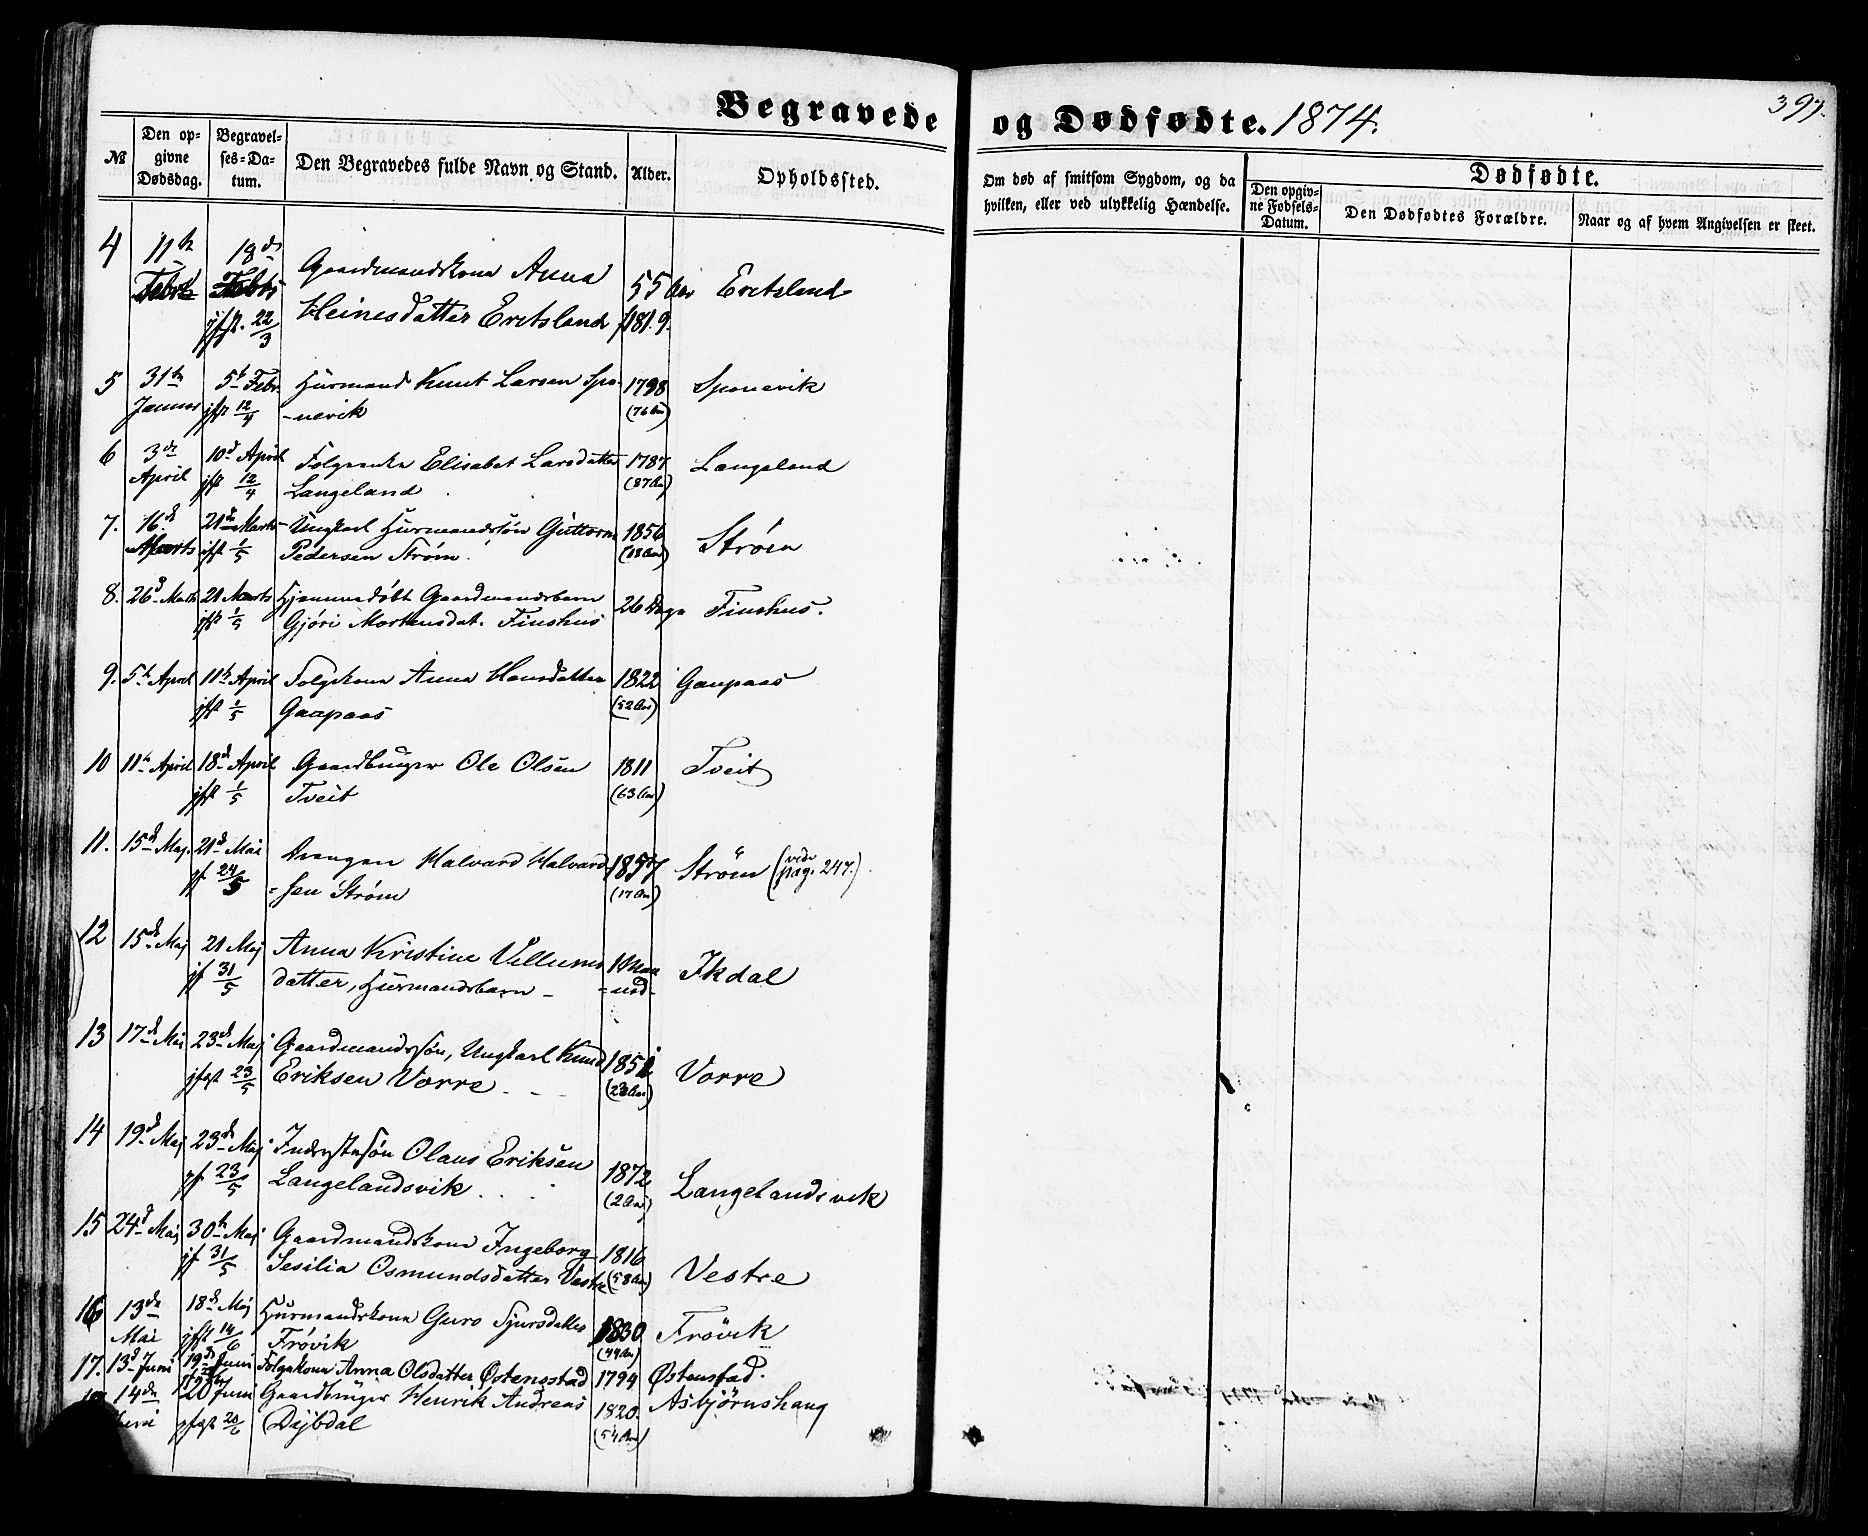 Begravede og Dødfødte. 1874.
397.
№
Den op-
givne
Dødsdag.
Begravel-
ses-Da-
tum.
Den Begravedes fulde Navn og Stand.
Alder.
Opholdssted.
Om død af smitsom Sygdom, og da
hvilken, eller ved ulykkelig Hændelse.
Dødfødte.
Den opgiv-
ne Fødsels-
Datum.
Den Dødfødtes Forældre.
Naar og af hvem Angivelsen er skeet.
4 11te 18de Gaardmandskona Anna
Febr Febr 55 Aar Eretsland
jfst. 22/3 Heinesdatter Eretsland 1819.
5 31te 5te Febr. Huusmand Knut Larsen Spo- 1798 Sponevik
Januar jfst 12/4 -nevik (76 Aar)
6 3de 10de April Folgeenke Elisabet Larsdatter 1787 Langeland
April jfst 12/4 Langeland (87 Aar)
7. 16de 21de Marts Ungkarl Huusmandssøn Guttorm 1856 Strøm
Marts jfst 1/5 Pedersen Strøm. (18 Aar)
8. 26de Marts 21 Marts Hjemmedøbt Gaardmandsbarn 26 Dage Finshus.
jfst 1/5 Gjøri Mortensdat. Finshus
9. 5te April 11te April Folgekona Anna Hansdatter 1822 Gaupaas
jfst 1/5 Gaupaas (52 Aar)
10 11te April 18de April Gaardbruger Ole Olsen 1811 Tveit
jfst 1/5 Tveit (63 Aar)
11. 15de Maj. 21de Mai Drengen Halvard Halvard- 1857 Strøm (vide pag. 247.)
jf 24/5 -sen Strøm (17 Aar)
12 15de Maj 21 Maj Anna Kristine Vellums- 1 Maa- Ikdal
jf 31/5 datter, Huusmandsbarn - -ned-
13 17de Mai 23de Maj Gaardmandssøn, Ungkarl Knud 1851 Vorre
jfgst 23/5 Eriksen Vorre (23 Aar)
14 19de Maj 23de Maj Inderstesøn Olaus Eriksen 1872 Langelandsvik
jf 23/5 Langelandsvik (2 Aar)
15 24de Maj 30te Maj Gaardmandskona Ingeborg 1816 Vestre
jf 31/5 Sesilia Osmundsdatter Vestre (58 Aar)
16 13de 18de Maj Huusmandskona Guro Sjursdatter 1830 Frøvik
Mai jfst 14/6 Frøvik (44 Aar)
17. 13de Juni 19de Juni Folgekona Anna Olsdatter Østensstad 1794 Østensstad.
14de 20 Juni Gaardbruger Henrik Andreas 1820. Asbjørnshaug
jfgst 20/6 Dijbdal (54 Aar)